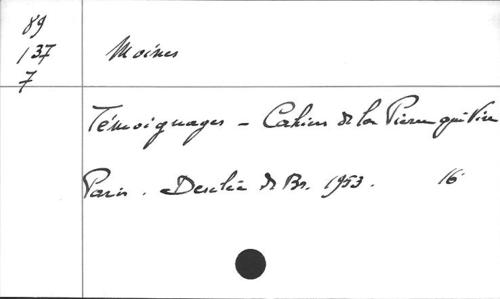 89
137
7
Moines
Témoignages - Cahiers de la Pierre qui Vire
Paris. Desclée de Br. 1953. 16